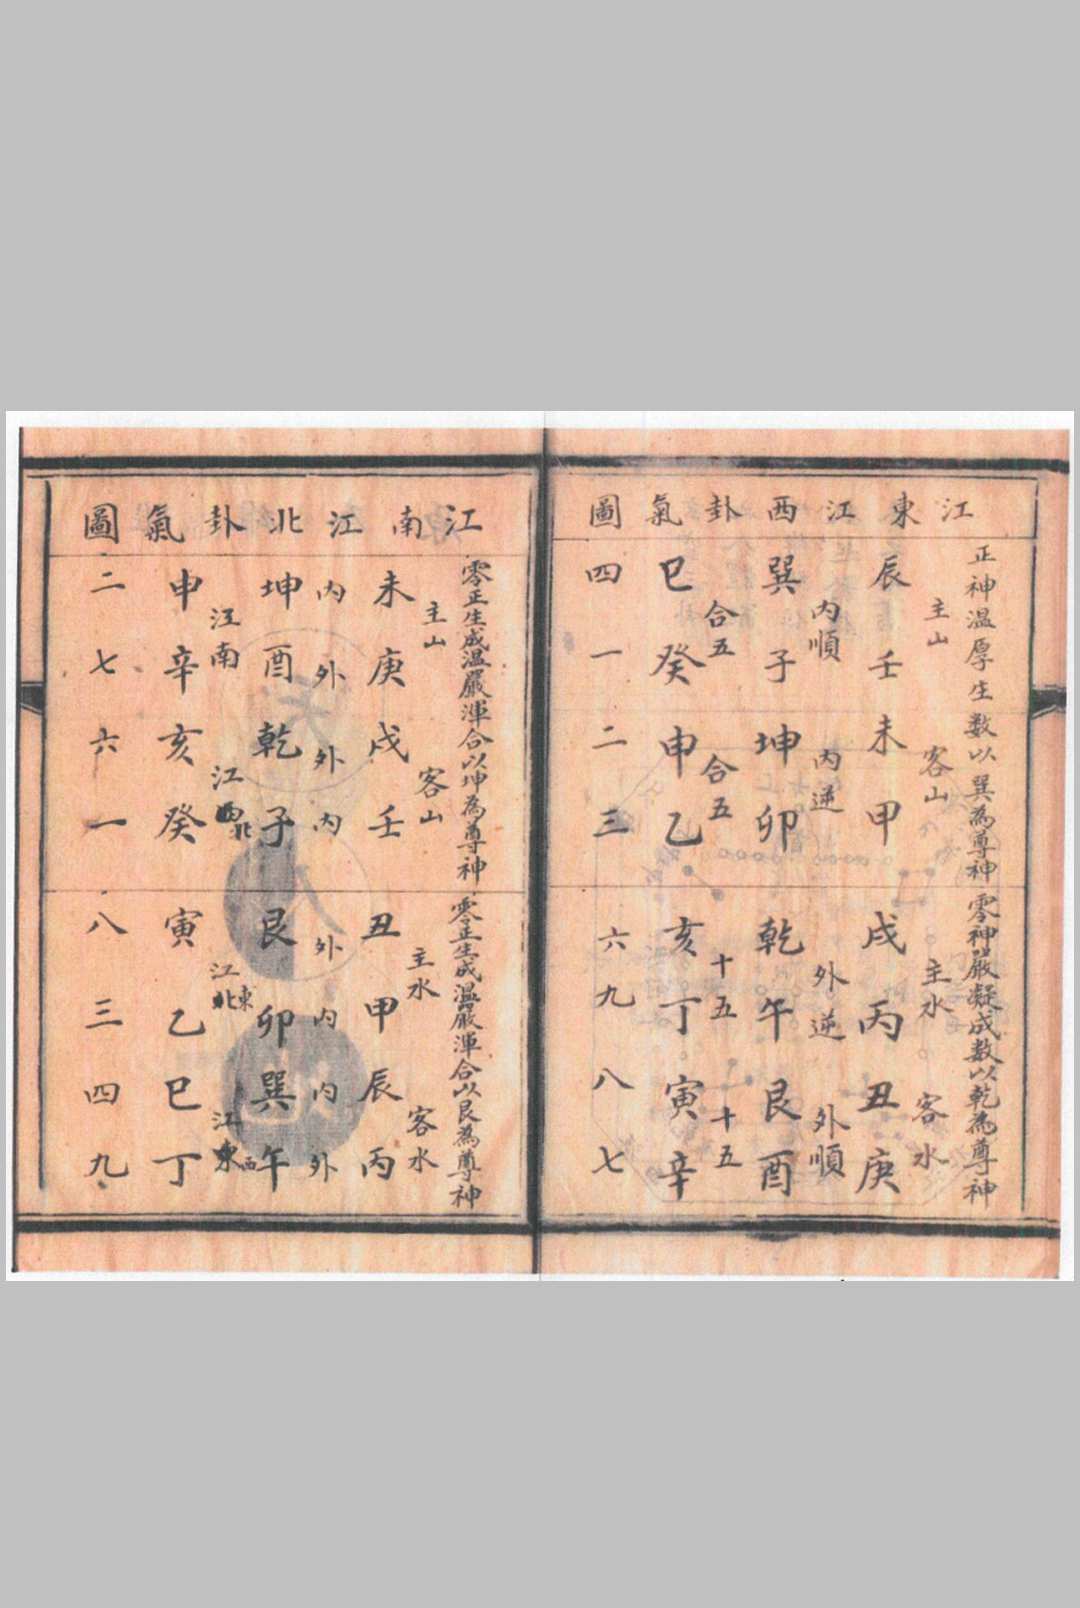 江東江西卦氣圖
正神溫厚生數以巽為尊神
零神嚴凝成數以乾為尊神
主山
客山
主水
客水
辰壬未甲戌丙丑庚
內順
內逆
外逆
外順
巽子坤卯乾午艮酉
合五
合五
十五
十五
巳癸申乙亥丁寅辛
四一二三六九八七
江南江北卦氣圖
零正生成溫嚴渾合以坤為尊神
零正生成溫嚴渾合以艮為尊神
主山
客山
主水
客水
未庚戌壬丑甲辰丙
內外外內外內內外
坤酉乾子艮卯巽午
江南
江北
江東
江西
申辛亥癸寅乙巳丁
二七六一八三四九